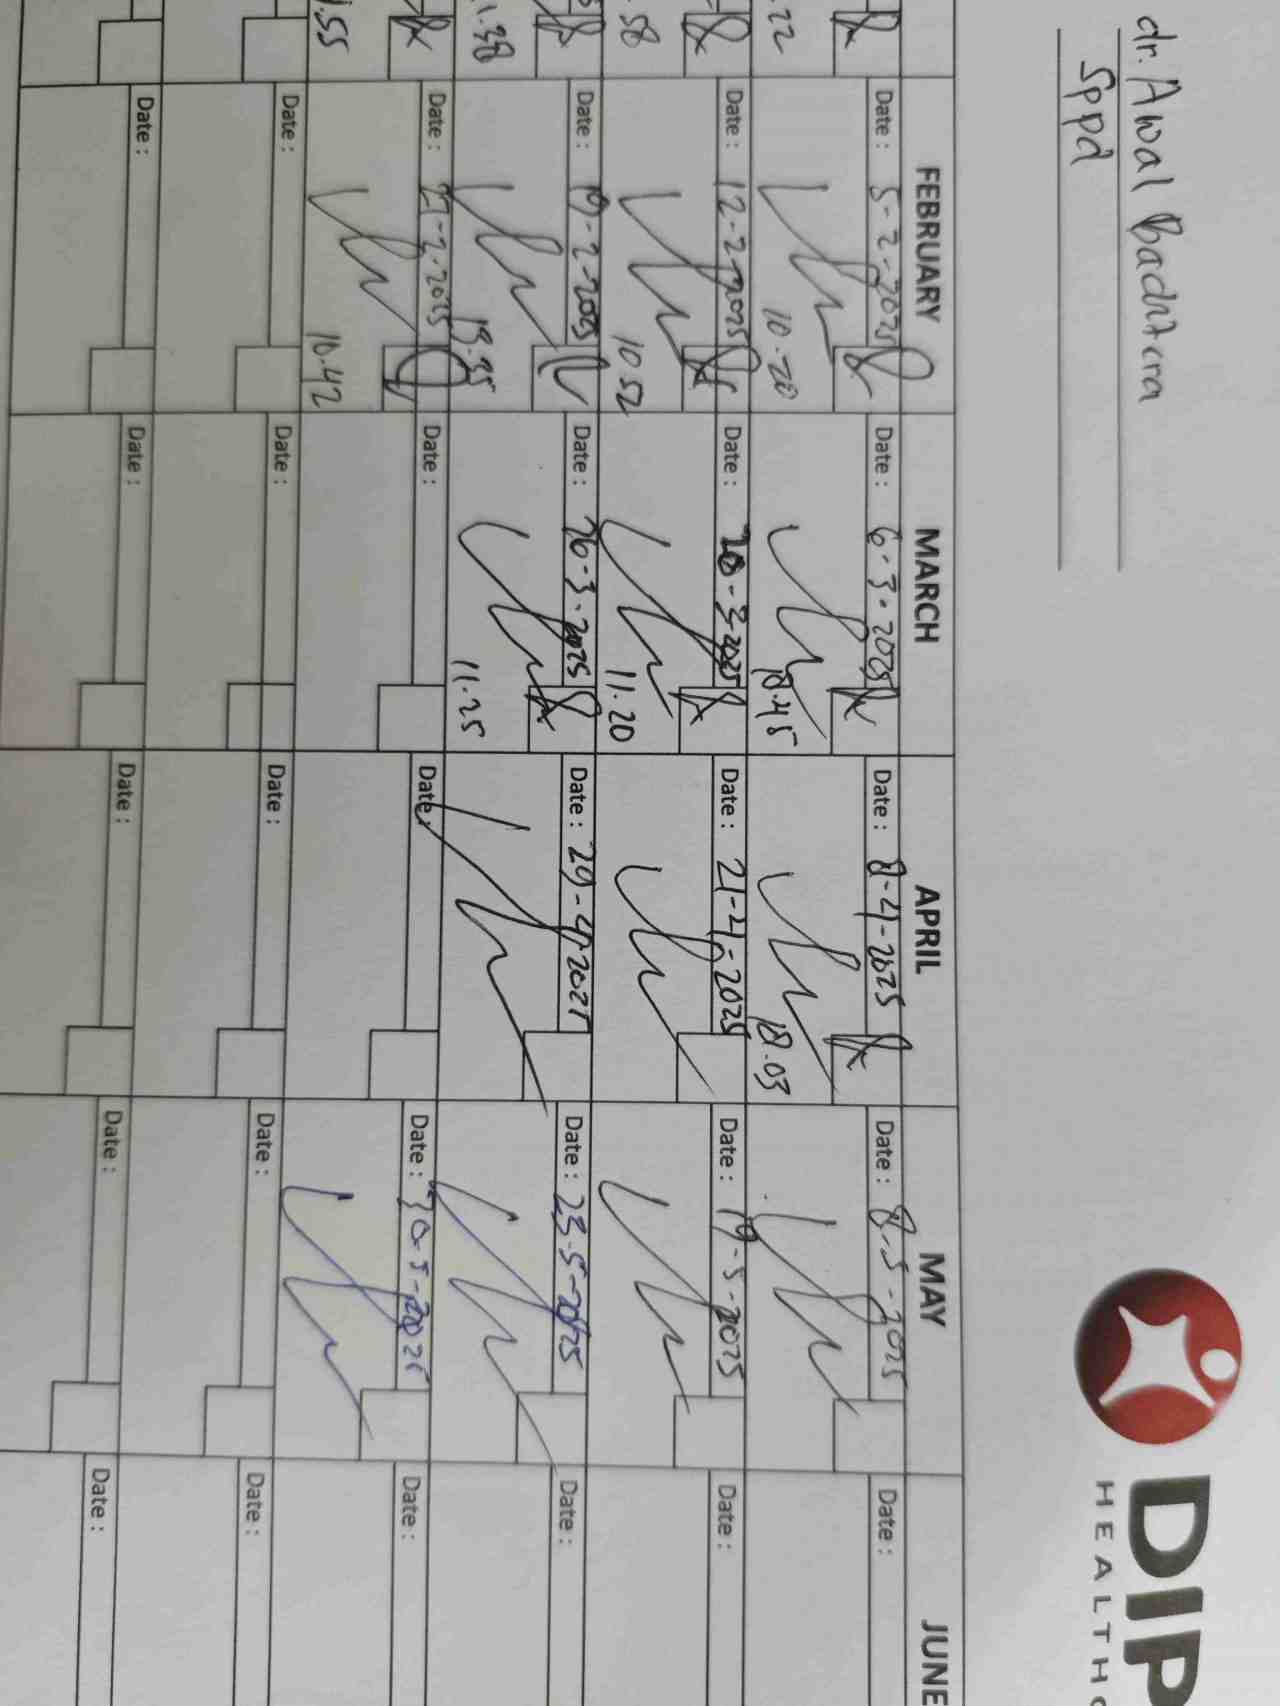 dr. Awal Badatcra
Sppd
DIP
HEALTHC
FEBRUARY MARCH APRIL MAY JUNE
Date : 5-2-2025 Date : 6-3-2025 Date : 8-4-2025 Date : 8-5-2025 Date :
.22 10.20 18.45 18.03
Date : 12-2-2025 Date : 20-3-2025 Date : 21-4-2025 Date : 19-5-2025 Date :
.58 10.52 11.20
Date : 19-2-2025 Date : 26-3-2025 Date : 29-4-2025 Date : 23-5-2025 Date :
1.38 19.35 11.25
Date : 27-2-2025 Date : Date : Date : 30-5-2025 Date :
.55 10.42
Date : Date : Date : Date : Date :
Date : Date : Date : Date : Date :